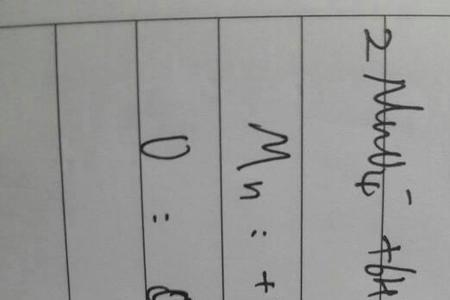 2 MnO4- + 6H
Mn : +
O :